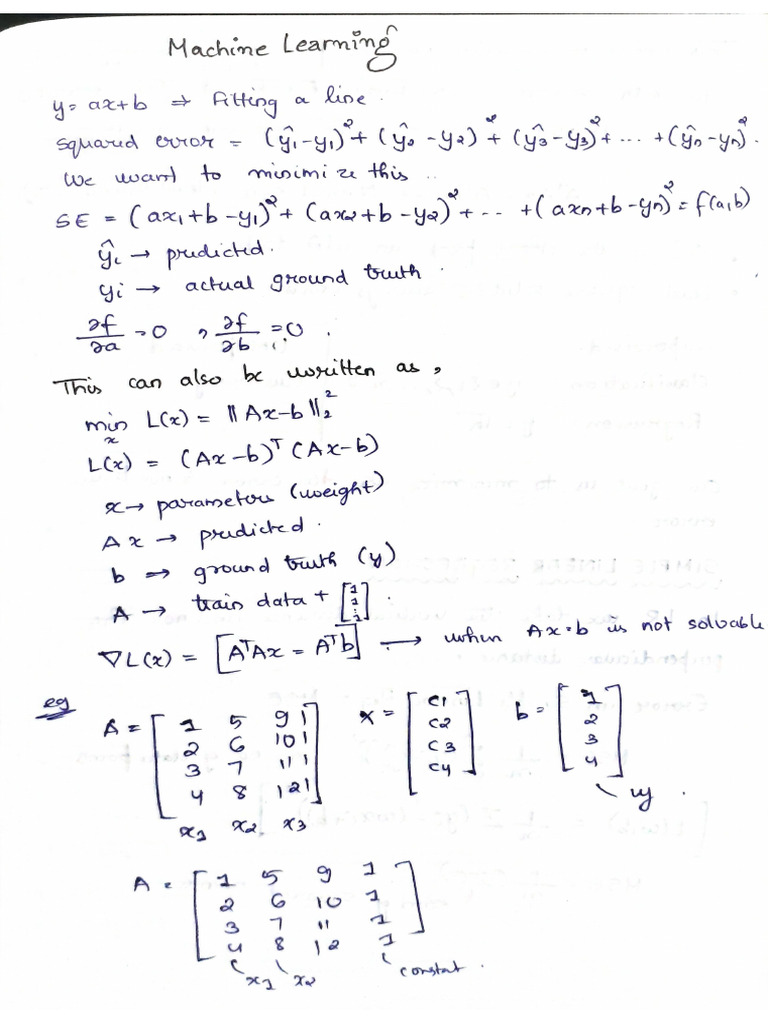 Machine Learning
y = ax+b ⇒ Fitting a line.
squared error = (ŷ1-y1)² + (ŷ2-y2)² + (ŷ3-y3)² + ... + (ŷn-yn)².
We want to minimize this ..
SE = (ax1+b-y1)² + (ax2+b-y2)² + ... + (axn+b-yn)² = f(a,b)
ŷi → predicted.
yi → actual ground truth.
∂f/∂a = 0 , ∂f/∂b = 0 .
This can also be written as,
min x L(x) = ||Ax-b||₂²
L(x) = (Ax-b)ᵀ (Ax-b)
x → parameters (weight)
Ax → predicted.
b ⇒ ground truth (y)
A → train data + [1 1 : 1].
∇L(x) = [AᵀAx = Aᵀb] → when Ax=b is not solvable
eg
A = [1 5 9 1 x = [c1 b = [1
2 6 10 1 c2 2
3 7 11 1 c3 3
4 8 12 1] c4] 4]
x1 x2 x3 y.
A = [1 5 9 1
2 6 10 1
3 7 11 1
4 8 12 1]
x1 x2 constat.